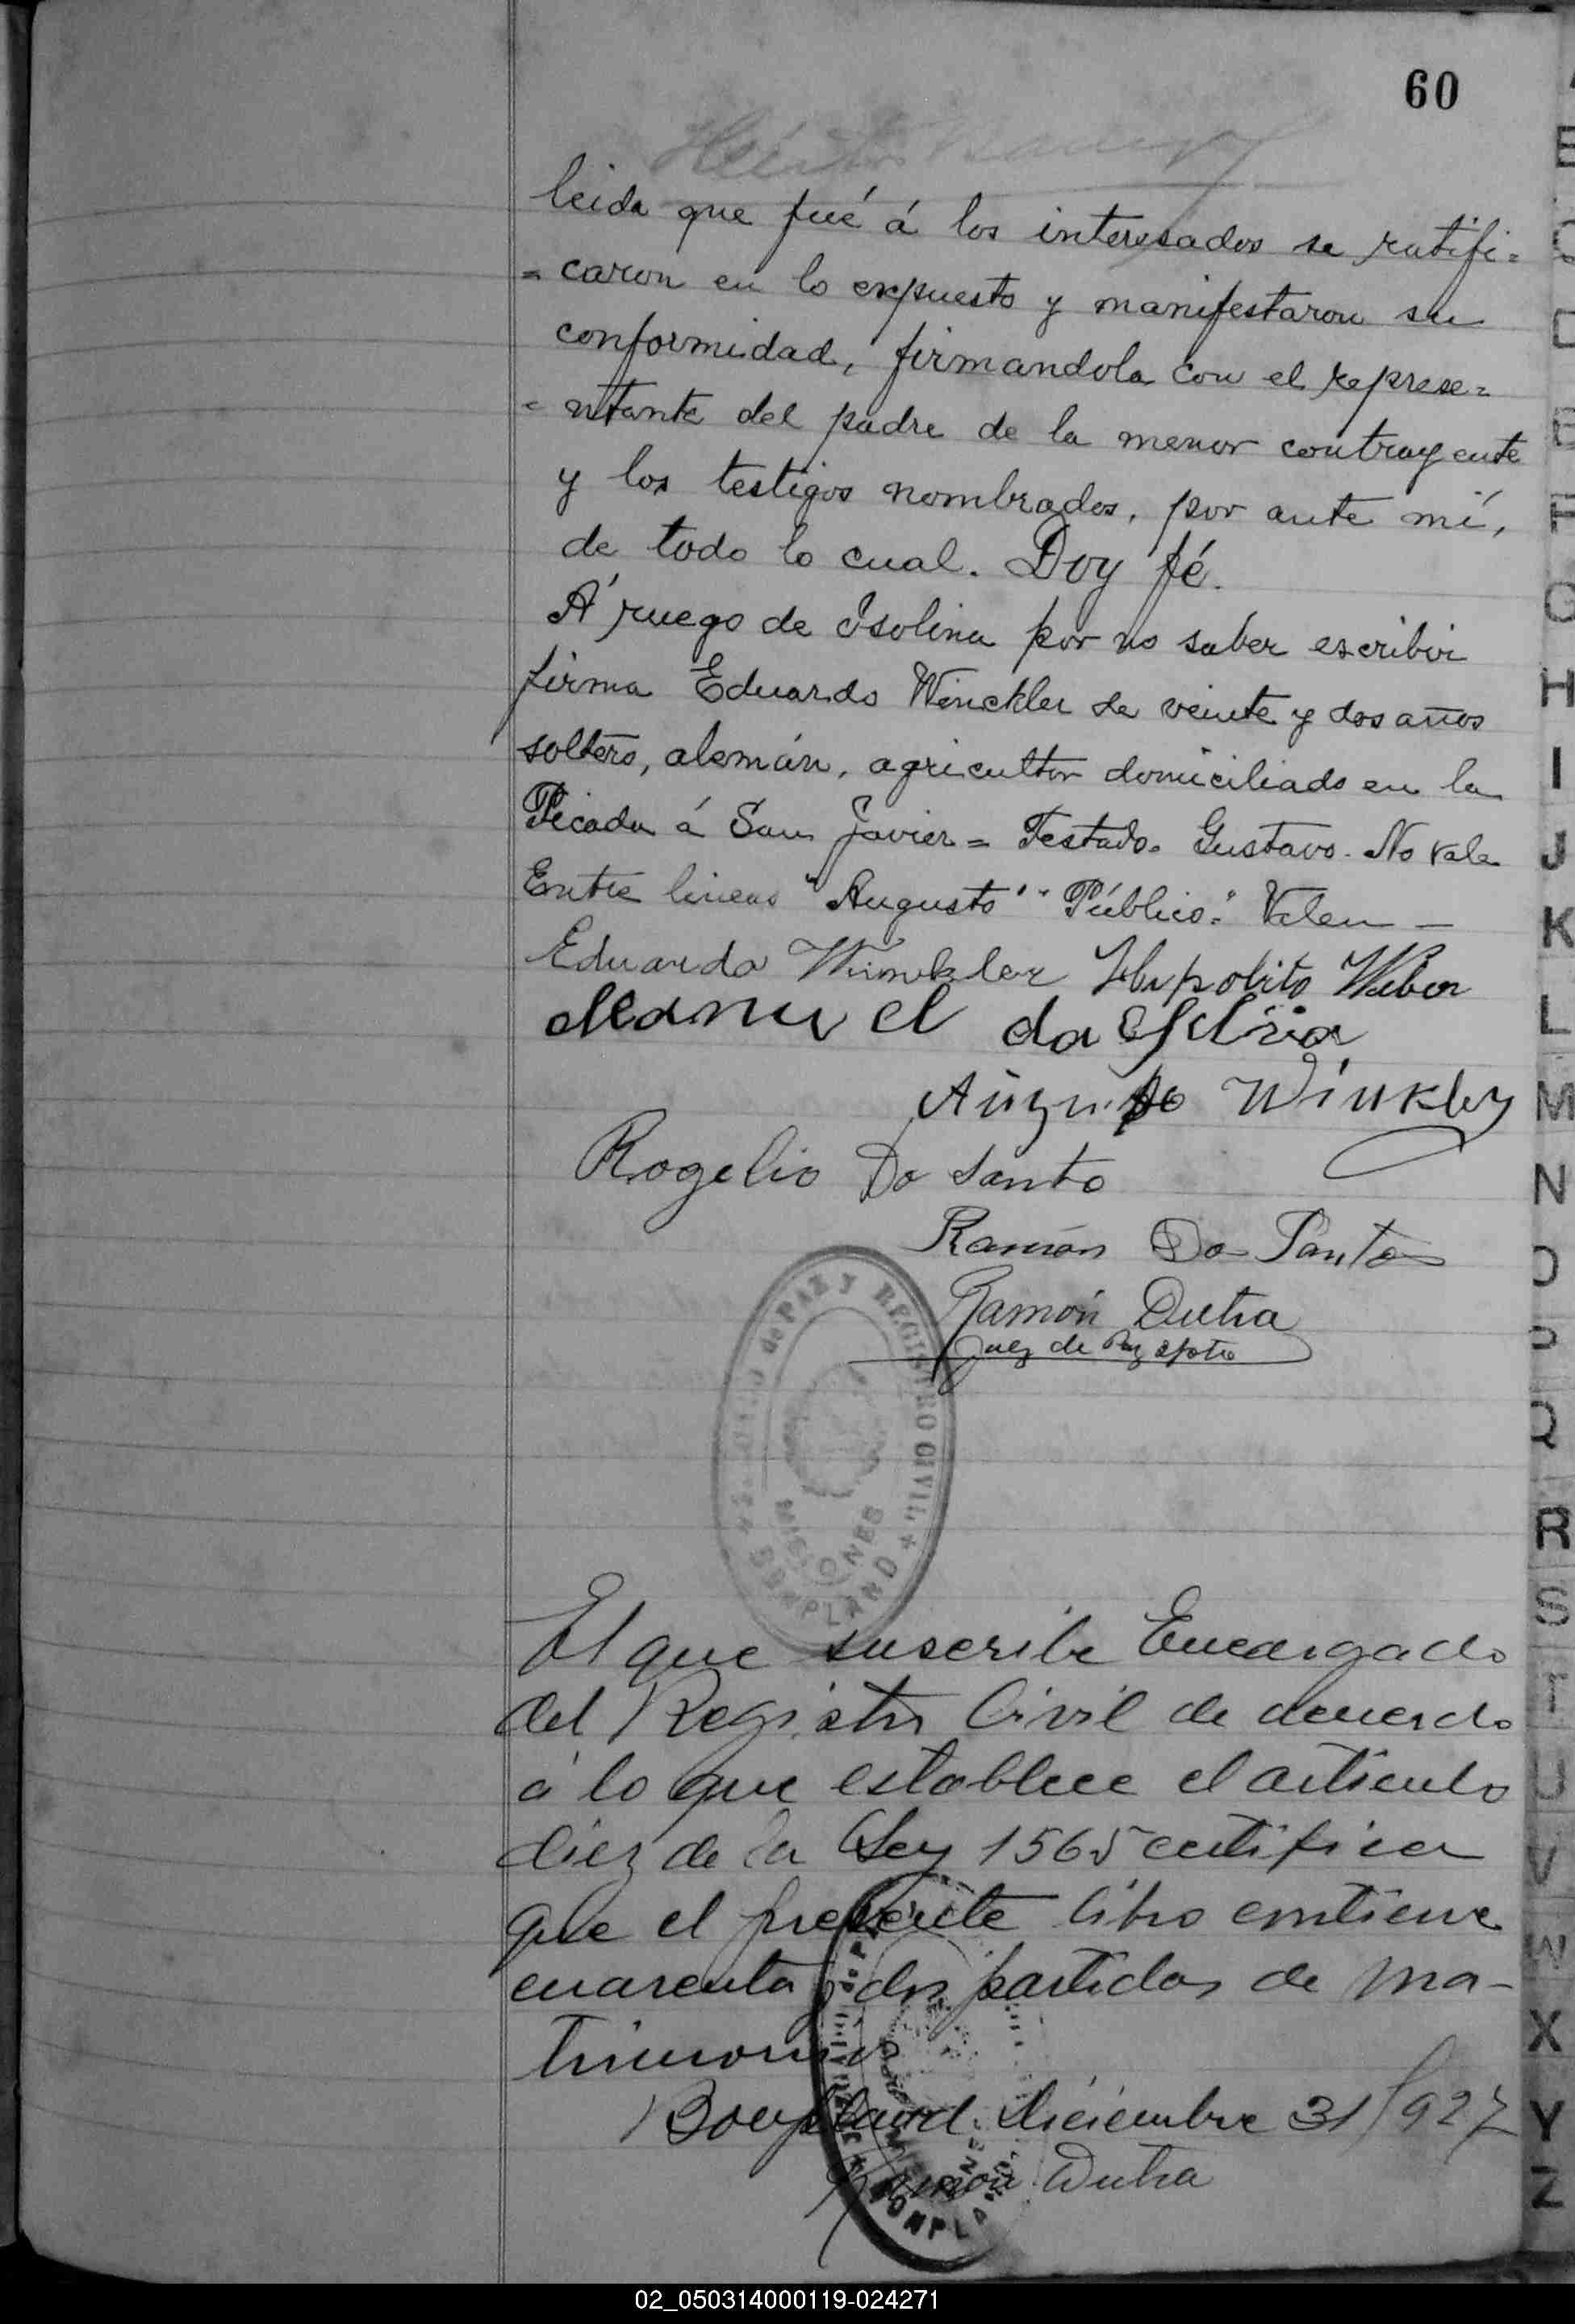 60
leida que fué á los interesados se ratifi=
= caron en lo expuesto y manifestaron su
conformidad, firmandola con el represe=
= ntante del padre de la menor contrayente
y los testigos nombrados, por ante mí,
de todo lo cual. Doy fé.
Á ruego de Isolina por no saber escribir
firma Eduardo Winckler de veinte y dos años
soltero, alemán, agricultor domiciliado en la
Picada á San Javier = Testado. Gustavo. No vale
Entre lineas "Augusto" "Público." Valen —
Eduardo Winckler Hipolito Weber
Manuel da Silva
Augusto Winkler
Rogelio Do Santo
Ramón Do Santo
Ramón Dutra
Juez de Paz
de PAZ Y REGISTRO CIVIL
MISIONES
BONPLAND
El que suscribe Encargado
del Registro Civil de acuerdo
á lo que establece el artículo
diez de la Ley 1565 certifica
que el presente libro contiene
cuarenta y dos partidas de ma-
trimonios
Bonpland Diciembre 31/927
Ramón Dutra
BONPLA
B
E
F
G
H
I
J
K
L
M
N
O
P
Q
R
S
T
U
V
W
X
Y
Z
02_050314000119-024271